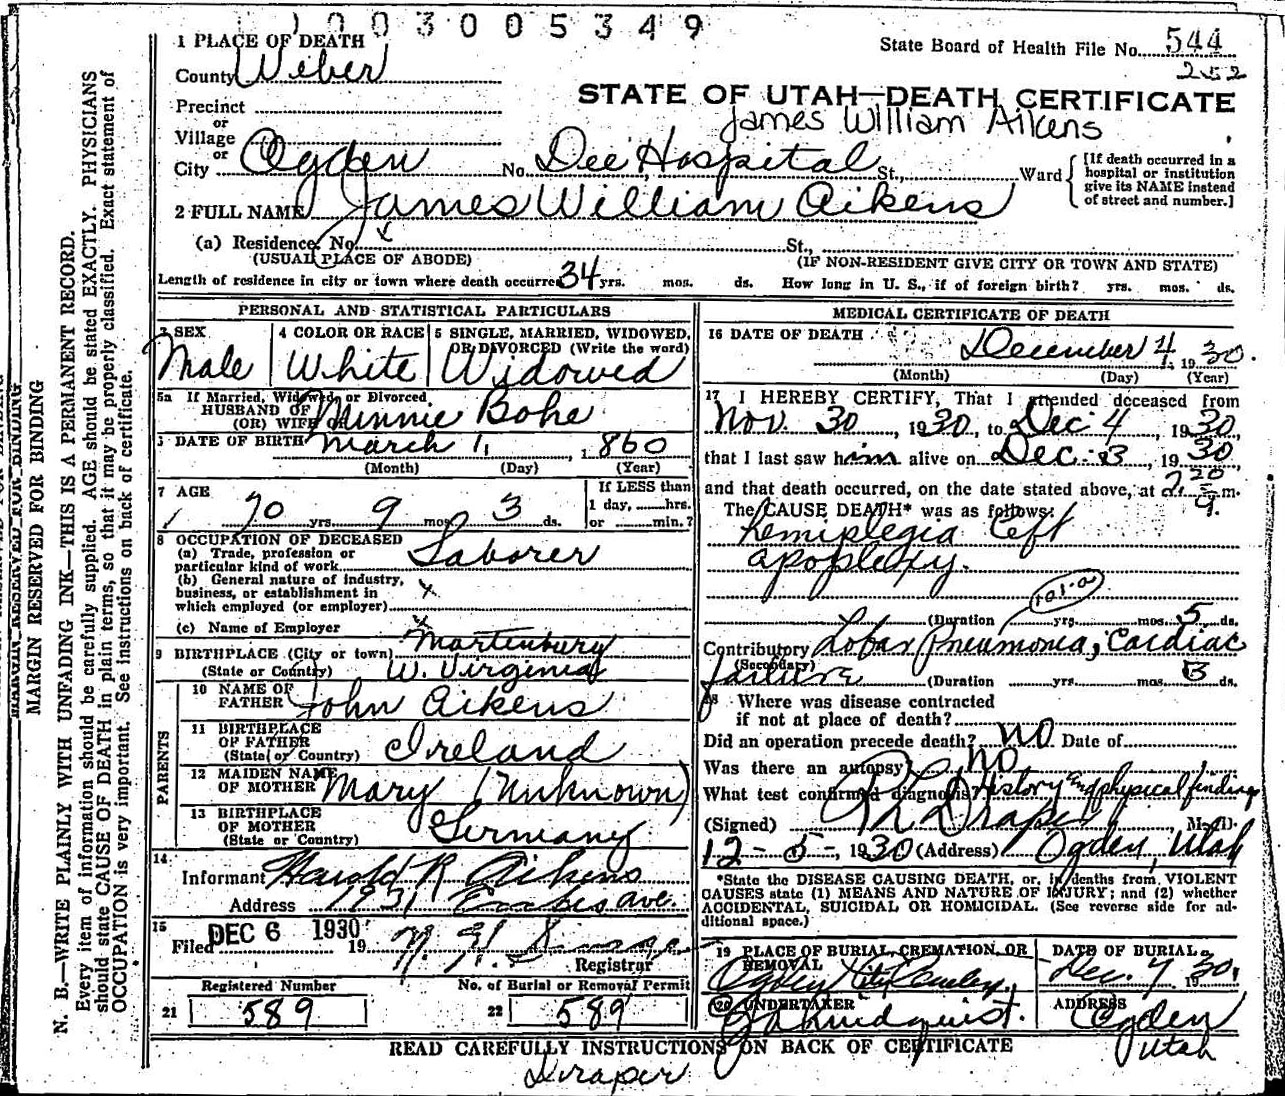 1003005349
1 PLACE OF DEATH
State Board of Health File No. 544
252
County Weber
STATE OF UTAH—DEATH CERTIFICATE
James William Aikens
Precinct
or
Village
or
City Ogden No. Dee Hospital St., Ward
[If death occurred in a
hospital or institution
give its NAME instead
of street and number.]
2 FULL NAME James William Aikens
(a) Residence. No. St.,
(USUAL PLACE OF ABODE) (IF NON-RESIDENT GIVE CITY OR TOWN AND STATE)
Length of residence in city or town where death occurred 34 yrs. mos. ds. How long in U. S., if of foreign birth? yrs. mos. ds.
PERSONAL AND STATISTICAL PARTICULARS
3 SEX 4 COLOR OR RACE 5 SINGLE, MARRIED, WIDOWED,
OR DIVORCED (Write the word)
Male White Widowed
5a If Married, Widowed, or Divorced
HUSBAND OF
(OR) WIFE OF Minnie Bohe
6 DATE OF BIRTH March 1, 1860
(Month) (Day) (Year)
7 AGE If LESS than
1 day, hrs.
70 yrs. 9 mos. 3 ds. or min.?
8 OCCUPATION OF DECEASED
(a) Trade, profession or
particular kind of work Laborer
(b) General nature of industry,
business, or establishment in
which employed (or employer) x
(c) Name of Employer x
9 BIRTHPLACE (City or town) Martenbury
(State or Country) W. Virginia
PARENTS
10 NAME OF
FATHER John Aikens
11 BIRTHPLACE
OF FATHER
(State or Country) Ireland
12 MAIDEN NAME
OF MOTHER Mary (Unknown)
13 BIRTHPLACE
OF MOTHER
(State or Country) Germany
14
Informant Harold R Aikens
Address 1931 ave.
15
Filed DEC 6 1930 19
Registrar
Registered Number No. of Burial or Removal Permit
21 589 22 589
MEDICAL CERTIFICATE OF DEATH
16 DATE OF DEATH December 4, 1930.
(Month) (Day) (Year)
17 I HEREBY CERTIFY, That I attended deceased from
Nov. 30, 1930, to Dec 4, 1930,
that I last saw him alive on Dec. 3, 1930,
and that death occurred, on the date stated above, at 2 20 a. m.
The CAUSE DEATH* was as follows:
Hemiplegia Left
apoplexy.
(Duration yrs. mos. 5 ds.
Contributory Lobar Pneumonia, Cardiac
(Secondary)
failure (Duration yrs. mos. 3 ds.
18 Where was disease contracted
if not at place of death?
Did an operation precede death? no Date of
Was there an autopsy? no
What test confirmed diagnosis? History and physical findings
(Signed) Draper, M. D.
12-5-, 1930 (Address) Ogden, Utah
*State the DISEASE CAUSING DEATH, or, in deaths from VIOLENT
CAUSES state (1) MEANS AND NATURE OF INJURY; and (2) whether
ACCIDENTAL, SUICIDAL OR HOMICIDAL. (See reverse side for ad-
ditional space.)
19 PLACE OF BURIAL, CREMATION, OR
REMOVAL
DATE OF BURIAL
Ogden City Dec. 7, 1930.
20 UNDERTAKER ADDRESS
Lindquist. Ogden
Utah
READ CAREFULLY INSTRUCTIONS ON BACK OF CERTIFICATE
Draper
MARGIN RESERVED FOR BINDING
MARGIN RESERVED FOR BINDING
N. B.—WRITE PLAINLY WITH UNFADING INK—THIS IS A PERMANENT RECORD.
Every item of information should be carefully supplied. AGE should be stated EXACTLY. PHYSICIANS
should state CAUSE OF DEATH in plain terms, so that it may be properly classified. Exact statement of
OCCUPATION is very important. See instructions on back of certificate.